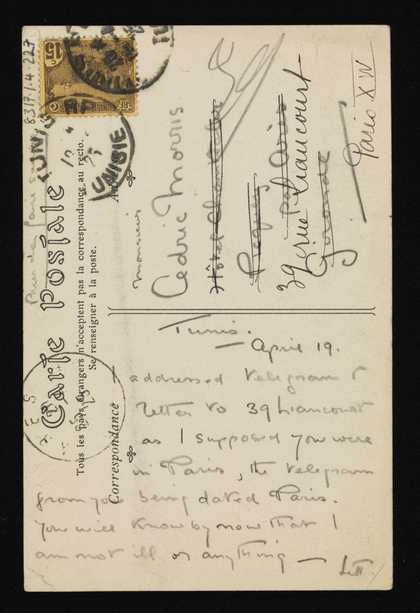 Carte Postale
Tous les pays étrangers n'acceptent pas la correspondance au recto.
Se renseigner à la poste.
Correspondance
8317.1.4.227
15c
TUNIS
TUNISIE
Monsieur
Cedric Morris
Hôtel
39 rue Liancourt
Paris XIV
Tunis.
— April 19.
addressed telegram &
letter to 39 Liancourt
as I supposed you were
in Paris, the telegram
from you being dated Paris.
You will know by now that I
am not ill or anything — Lett